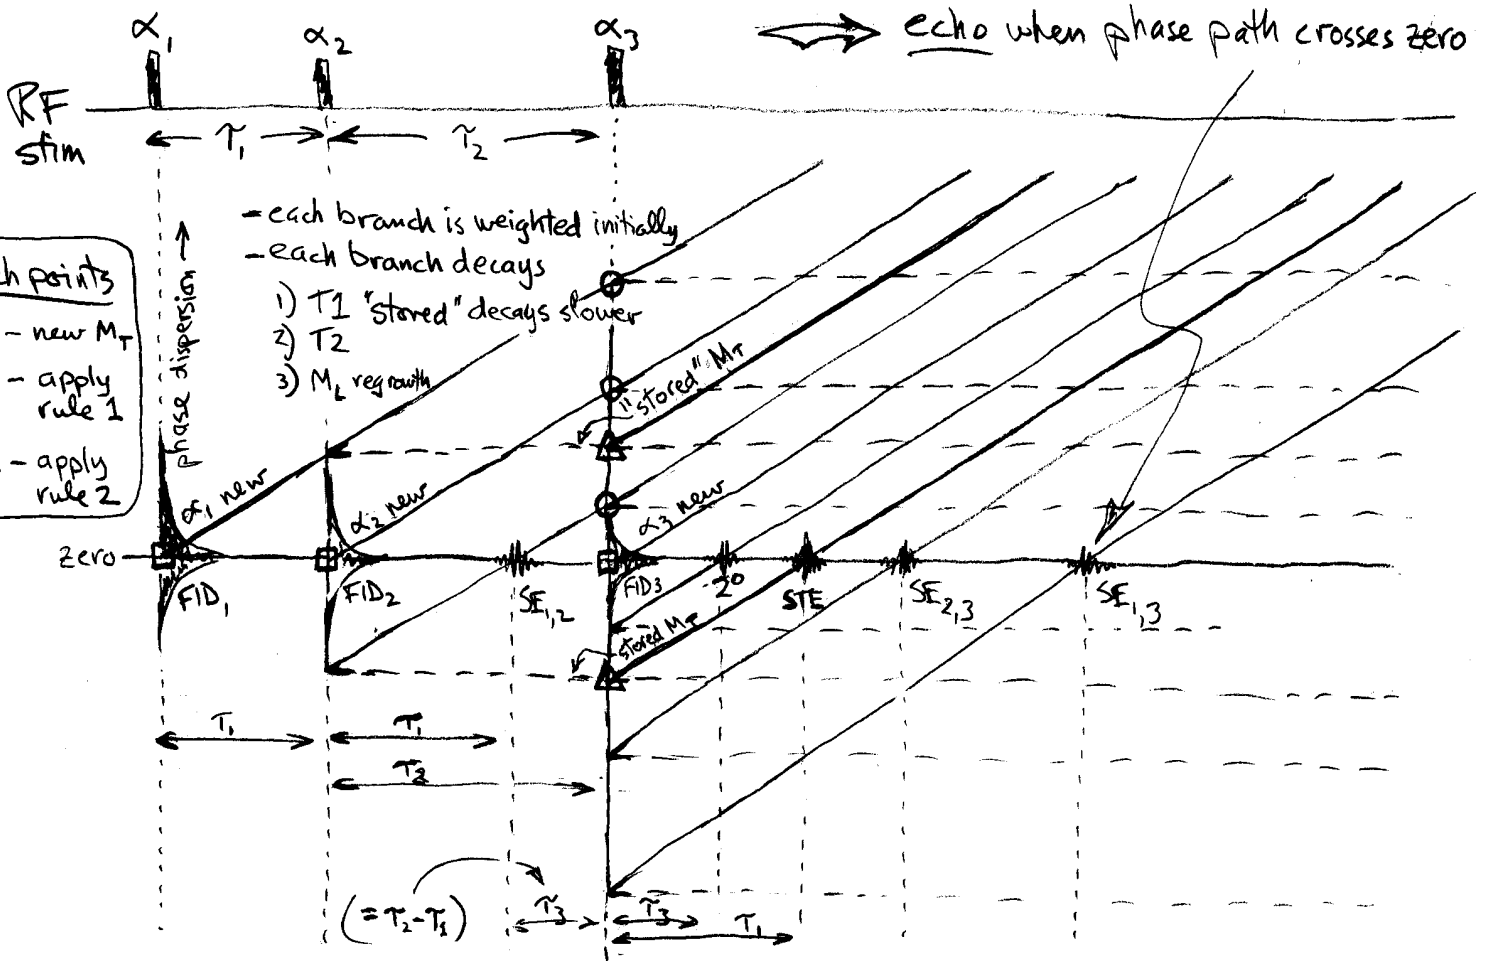 α₁ α₂ α₃
echo when phase path crosses zero
RF
stim
τ₁ τ₂
- each branch is weighted initially
- each branch decays
1) T1 "stored" decays slower
2) T2
3) M_L regrowth
h points
- new M_T
- apply
rule 1
- apply
rule 2
phase dispersion →
"stored" M_T
α₁ new
α₂ new
α₃ new
zero
FID₁
FID₂
SE₁,₂
FID₃
2°
STE
SE₂,₃
SE₁,₃
stored M_T
τ₁ τ₁
τ₂
(= τ₂-τ₁)
τ₃ τ₃
τ₁